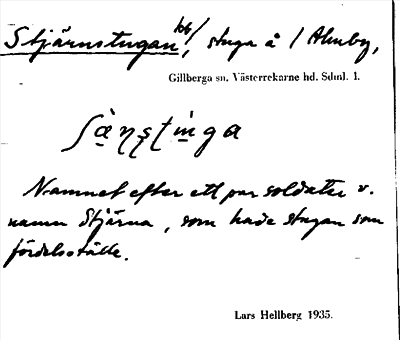 Stjärnstugan, tstuga å / Ahuby,
Gillberga sn. Västerrekarne hd. Sdml. 1.
Namnet efter ett par soldater v.
namn Stjärna, som hade stugan som
fördelsställe.
Lars Hellberg 1935.